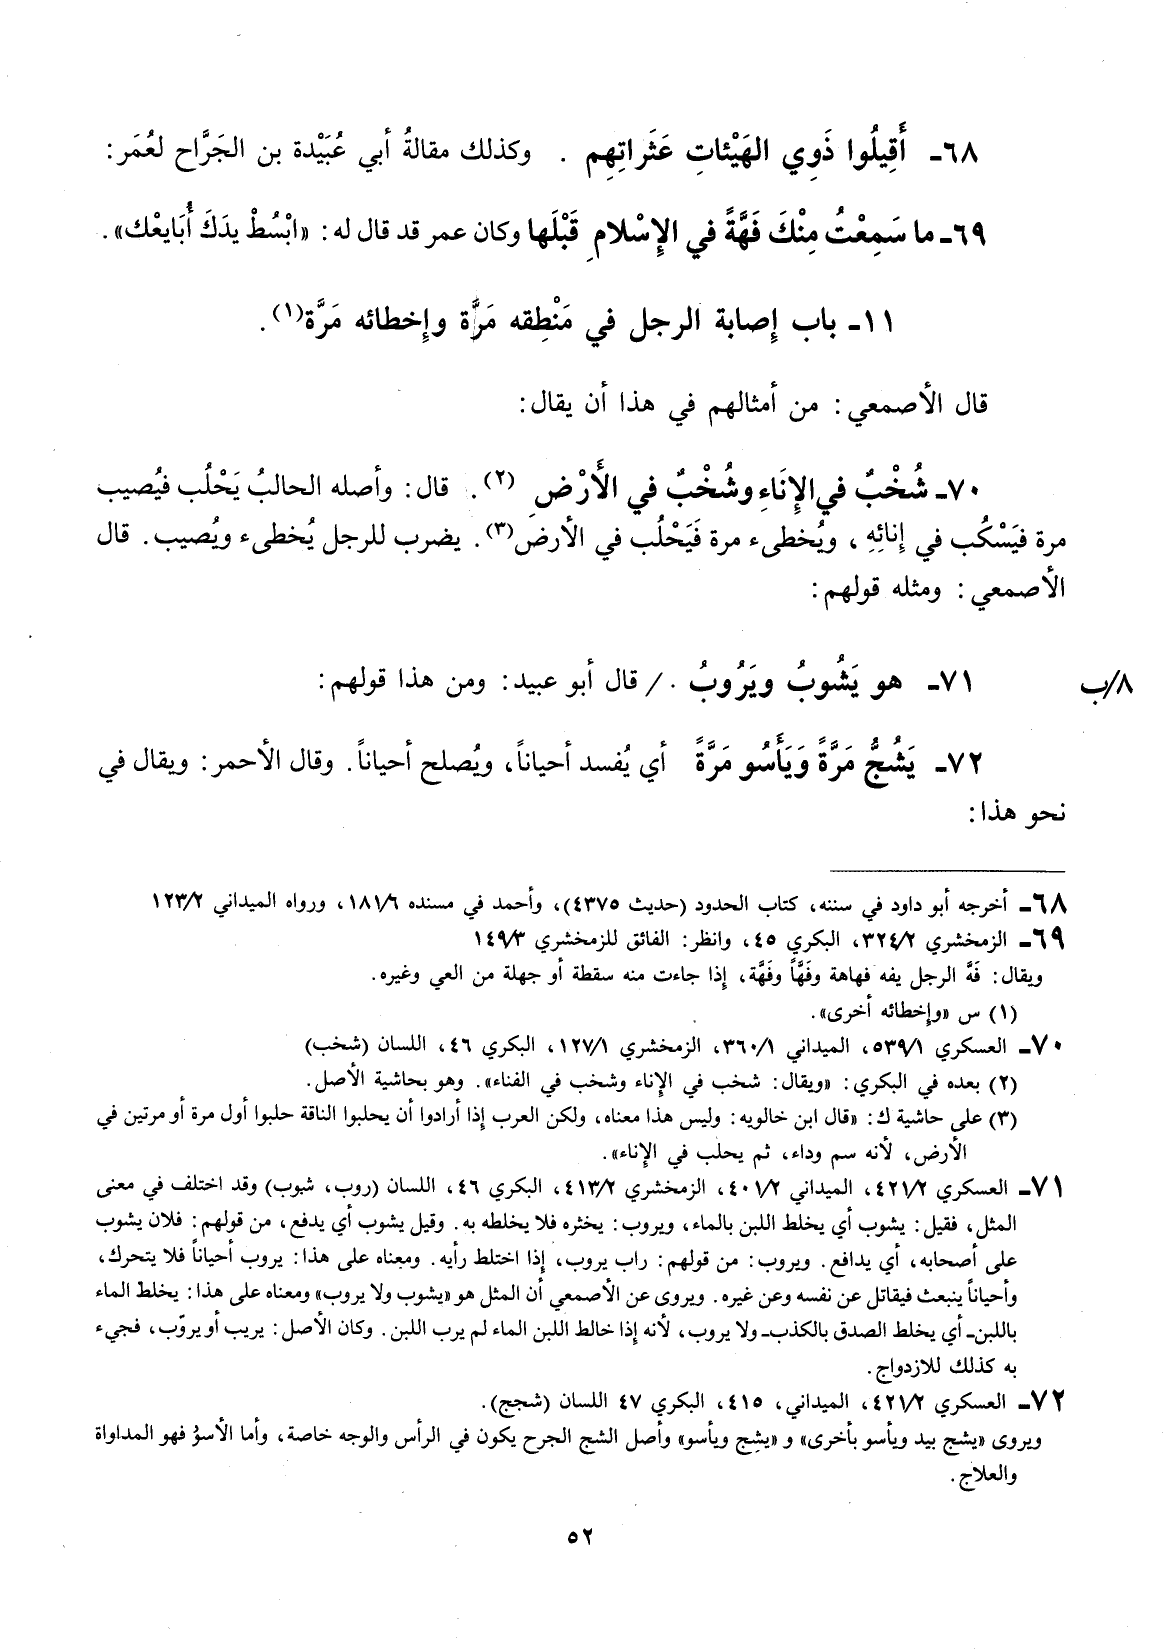 ٦٨ـ أَقِيلُوا ذَوِي الهَيْئاتِ عَثَراتِهِم . وكذلك مقالةُ أبي عُبَيْدة بن الجَرَّاح لعُمَر:
٦٩ـ ما سَمِعْتُ مِنْكَ فَهَّةً في الإِسْلامِ قَبْلَها وكان عمر قد قال له: «ابْسُطْ يدَكَ أُبَايعْك».
١١ـ باب إصابة الرجل في مَنْطِقه مَرَّة وإخطائه مَرَّة(١).
قال الأصمعي: من أمثالهم في هذا أن يقال:
٧٠ـ شُخْبٌ في الإِنَاءِ وشُخْبٌ في الأَرْضِ (٢). قال: وأصله الحالبُ يَحْلُب فيُصيب
مرة فيَسْكُب في إنائِهِ ، ويُخطىء مرة فَيَحْلُب في الأرض(٣). يضرب للرجل يُخطىء ويُصيب. قال
الأصمعي: ومثله قولهم:
٧١ـ هو يَشُوبُ ويَرُوبُ . / قال أبو عبيد: ومن هذا قولهم:
٨/ب
٧٢ـ يَشُجُّ مَرَّةً وَيَأْسُو مَرَّةً أي يُفسد أحياناً، ويُصلح أحياناً. وقال الأحمر: ويقال في
نحو هذا:
٦٨ـ أخرجه أبو داود في سننه، كتاب الحدود (حديث ٤٣٧٥)، وأحمد في مسنده ١٨١/٦، ورواه الميداني ١٢٣/٢
٦٩ـ الزمخشري ٣٢٤/٢، البكري ٤٥، وانظر: الفائق للزمخشري ١٤٩/٣
ويقال: فَهَّ الرجل يفه فهاهة وفَهَّاً وفَهَّة، إذا جاءت منه سقطة أو جهلة من العي وغيره.
(١) س «وإخطائه أخرى».
٧٠ـ العسكري ٥٣٩/١، الميداني ٣٦٠/١، الزمخشري ١٢٧/١، البكري ٤٦، اللسان (شخب)
(٢) بعده في البكري: «ويقال: شخب في الإناء وشخب في الفناء». وهو بحاشية الأصل.
(٣) على حاشية ك: «قال ابن خالويه: وليس هذا معناه، ولكن العرب إذا أرادوا أن يحلبوا الناقة حلبوا أول مرة أو مرتين في
الأرض، لأنه سم وداء، ثم يحلب في الإناء».
٧١ـ العسكري ٤٢١/٢، الميداني ٤٠١/٢، الزمخشري ٤١٣/٢، البكري ٤٦، اللسان (روب، شوب) وقد اختلف في معنى
المثل، فقيل: يشوب أي يخلط اللبن بالماء، ويروب: يخثره فلا يخلطه به. وقيل يشوب أي يدفع، من قولهم: فلان يشوب
على أصحابه، أي يدافع. ويروب: من قولهم: راب يروب، إذا اختلط رأيه. ومعناه على هذا: يروب أحياناً فلا يتحرك،
وأحياناً ينبعث فيقاتل عن نفسه وعن غيره. ويروى عن الأصمعي أن المثل هو «يشوب ولا يروب» ومعناه على هذا: يخلط الماء
باللبن ـ أي يخلط الصدق بالكذب ـ ولا يروب، لأنه إذا خالط اللبن الماء لم يرب اللبن. وكان الأصل: يريب أو يروّب، فجيء
به كذلك للازدواج.
٧٢ـ العسكري ٤٢١/٢، الميداني، ٤١٥، البكري ٤٧ اللسان (شجج).
ويروى «يشج بيد ويأسو بأخرى» و «يشِج ويأسو» وأصل الشج الجرح يكون في الرأس والوجه خاصة، وأما الأسوْ فهو المداواة
والعلاج.
٥٢